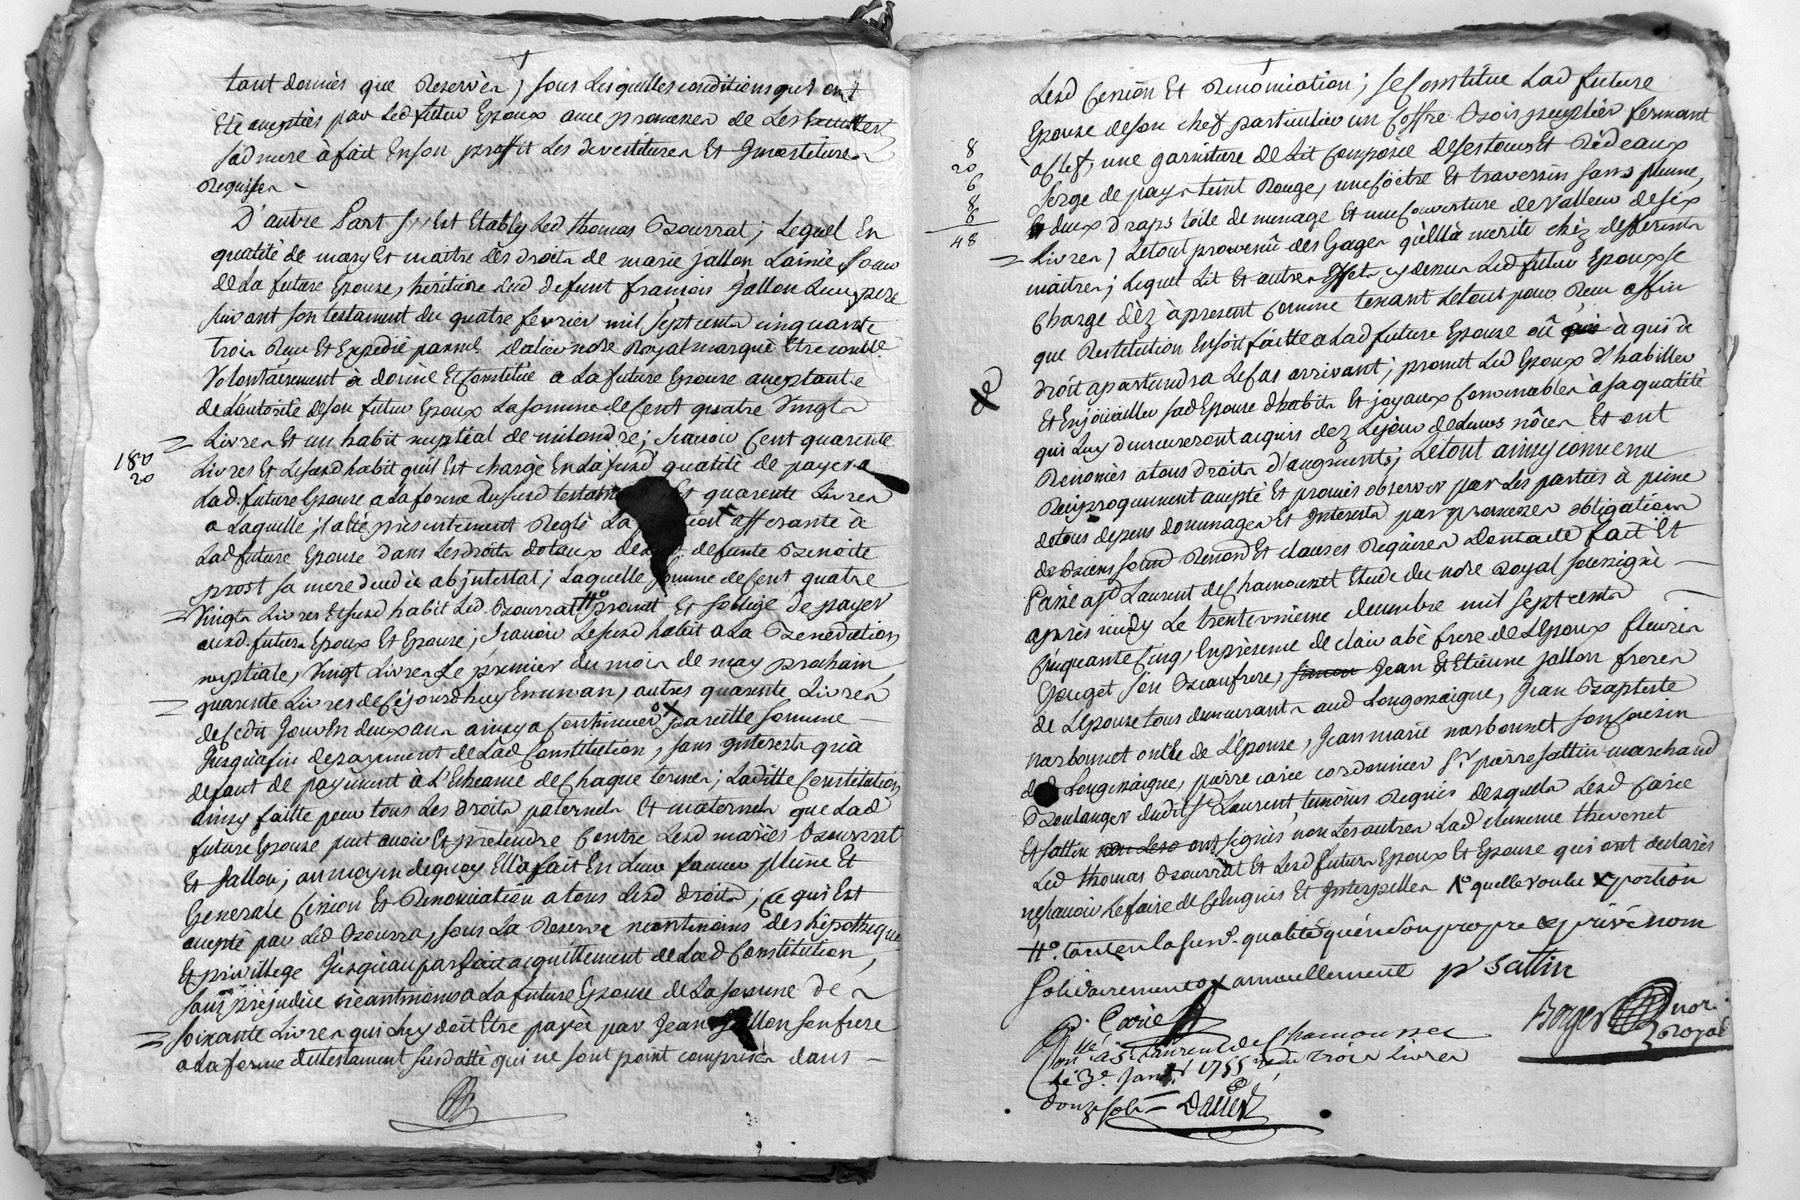 tant donnés que Reservés, sous Lesquelles conditions qui ont
Eté acceptées par Led futur Epoux avec promesses de Les
sad mere à fait En son proffit Les devestitures Et Investitures
Requises
D'autre Part s'y Est Etably Led thomas Bourrat, Lequel En
qualité de mary Et maitre des droits de marie jallon Lainée soeur
de La future Epouse, héritiere dud defunt françois Jallon Leur pere
suivant son testament du quatre fevrier mil sept cents cinquante
trois Reçu Et Expedié par me Dalier notre Royal marqué Etre conllé
Volontairement à donné Et Constitué a La future Epouse acceptante
de L'autorité de son futur Epoux La somme de Cent quatre Vingts
Livres Et un habit nuptial de milondre; sçavoir Cent quarente
180
20
Livres Et Lesusd habit quil Est chargé En Lasusd qualité de payer a
Lad. future Epouse a La forme dususd testament Et quarente Livres
a Laquelle il a été présentement Reglé La portion afferante à
Lad future Epouse dans Lesdroits dotaux de defunte Benoite
prost sa mere decedée abjntestat; Laquelle somme de Cent quatre
Vingts Livres Et susd habit Led. Bourrat #o promet Et s'oblige de payer
ausd. futurs Epoux Et Epouse; sçavoir Lesusd habit a La Benediction
nuptiale, Vingt Livres Le premier du mois de may prochain,
quarente Livres de Cejourdhuy En un an, autres quarente Livres
de Cedit Jour En deux ans ainsy a Continuer x pareille somme
Jusquà fin de payement de Lad Constitution, sans Interests quà
defaut de payement à L'Echeance de Chaque terme; Laditte Constitution
ainsy faitte pour tous Les droits paternels Et maternels que Lad
future Epouse peut avoir Et prétendre Contre Lesd mariés Bourrat
Et Jallon; au moyen dequoy Ell'à fait En Leur faveur pleine Et
Generale Cession Et Renonciation a tous Lesd droits; Ce qui Est
accepté par Led Bourra, sous La Reserve néantmoins des hipothèque
Et privillege Jusqu'au parfait acquittement de Lad Constitution,
sans préjudice néantmoins a La future Epouse de La somme de
soixante Livres qui Luy doit Etre payée par Jean Jallon son frere
a La forme du testament susdatté qui ne sont point comprises dans
Lesd Cession Et Renonciation; se Constitue Lad future
Epouse de son chef particulier un Coffre Bois peuplier fermant
8
20
6
8
6
48
à Clef, une garniture de Lit Composée de ses tours Et Rideaux
serge de pays teint Rouge, une Coëtre Et traversin sans plume,
deux draps toile de menage Et une Couverture de Valleur de six
Livres, Le tout provenû des Gages qu'Ell'à merité chéz differents
maitres; Lequel Lit Et autres Effets cy dessus Led futur Epoux se
Charge dèz à present Comme tenant Le tout pour Reçu affin
que Restitution En soit faitte a Lad future Epouse où à qui de
droit apartiendra Le Cas arrivant; promet Led Epoux d'habiller
Et Enjoüailler sad Epouse d'habits Et joyaux Convenables à sa qualité
qui Luy demeureront acquis dez Le jour de Leurs nôces Et ont
Renoncés a tous droits d'augments; Le tout ainsy convenu
Reciproquement accepté Et promis observer par Les parties à peine
de tous depens dommages Et Interests par promesses obligation
de Biens soum Renon Et clauses Requises Dont acte fait Et
Passé a St Laurent de Chamousset Etude du notre Royal soussigné
après midy Le trente unième decembre mil sept cents
Cinquante Cinq, En présence de clair abè frere de L'Epoux fleurie
Gouget son Beaufrere, Jean Et Etienne Jallon freres
de L'Epouse tous demeurants aud Longessaigne, Jean Baptiste
narbonnet oncle de L'Epouse, Jean marie narbonnet son Cousin
de Longessaigne, pierre carie cordonnier Sr pierre sattin marchand
Boulanger dudit St Laurent, temoins Requis desquels Lesd Carie
Et sattin ont signés, non Les autres Lad clemence thevenet
Led thomas Bourrat Et Lesd futurs Epoux Et Epouse qui ont declarés
ne sçavoir Le faire de Ce Enquis Et Interpellés quelle voulu x portion
#o. tant en la susd. qualité quén son propre & privé nom
Solidairement ox annuellement p sattin
p. Carie
Boyer nore
Royal
Con.lé a St Laurent de Chamousset
le 3e Janv 1755 Reçu Trois Livres
Douze sols Dalier